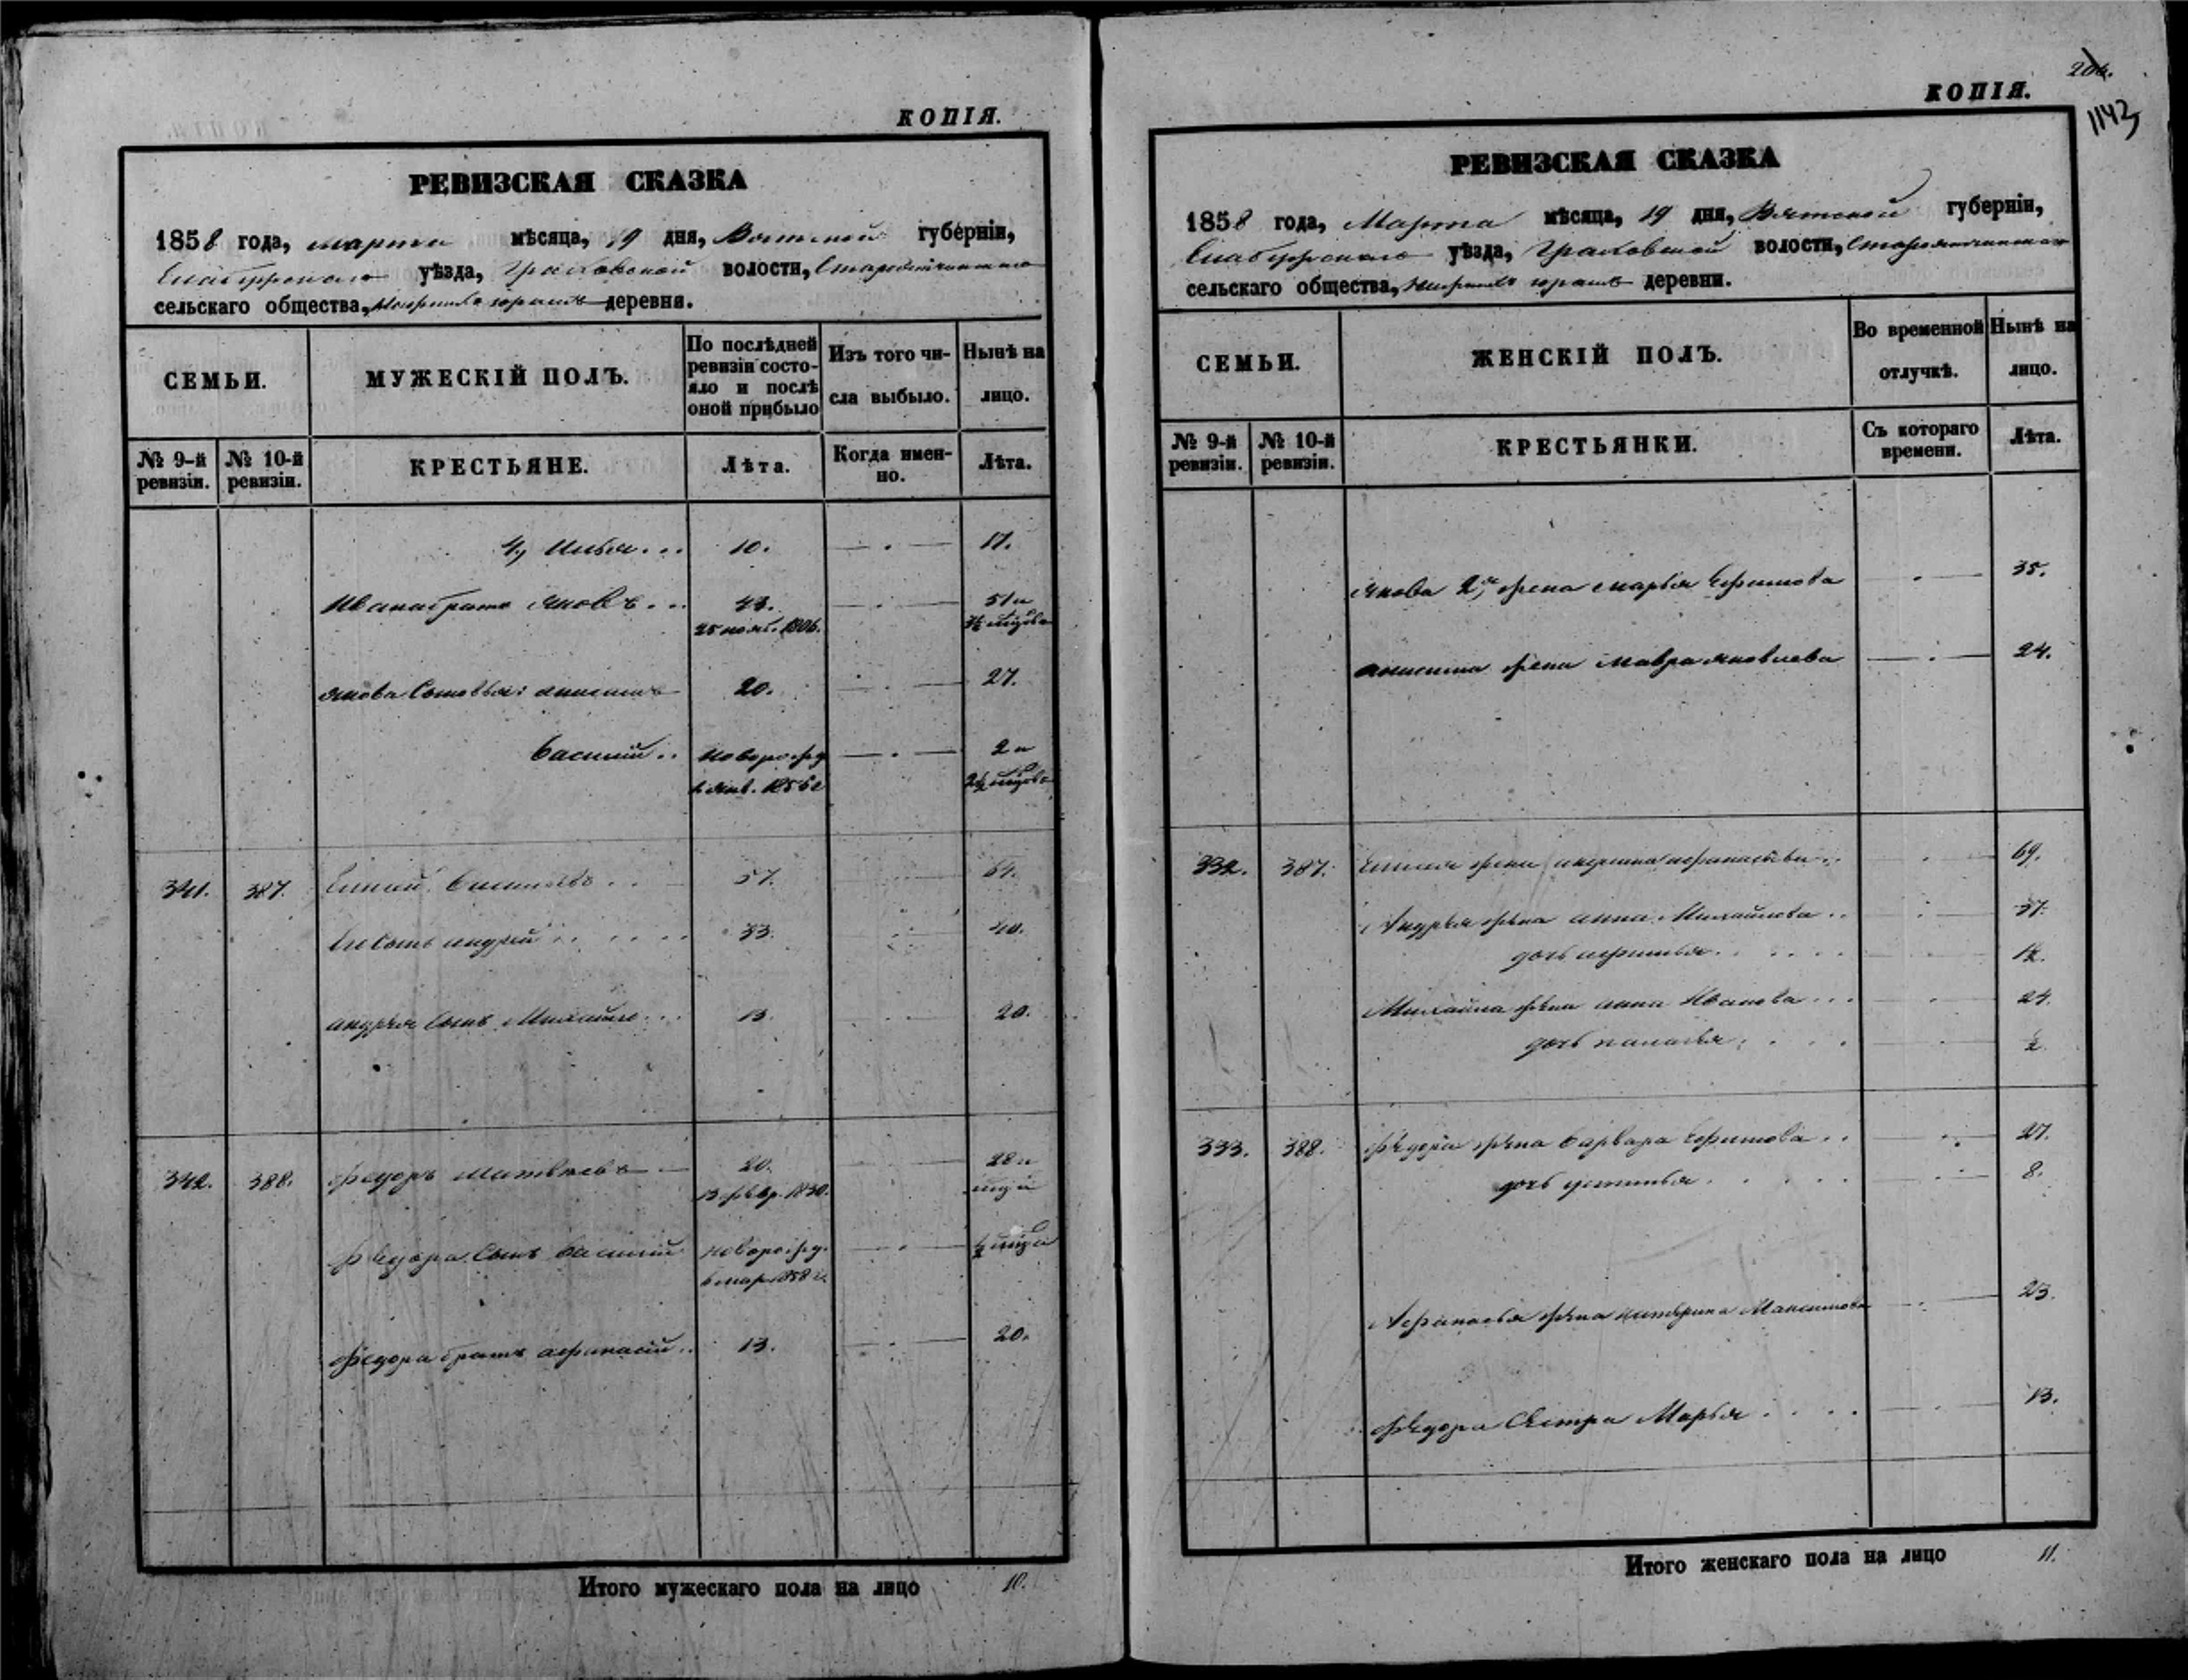 КОПІЯ.
РЕВИЗСКАЯ СКАЗКА
1858 года, марта мѣсяца, 19 дня, Вятской губерніи,
Елабужскаго уѣзда, Граховской волости,
сельскаго общества, деревни.
СЕМЬИ.
МУЖЕСКІЙ ПОЛЪ.
По послѣдней
ревизіи состо-
яло и послѣ
оной прибыло
Изъ того чи-
сла выбыло.
Нынѣ на
лицо.
№ 9-й
ревизіи.
№ 10-й
ревизіи.
КРЕСТЬЯНЕ.
Лѣта.
Когда имен-
но.
Лѣта.
4, Илья... 10. — . — 17.
Ивана братъ Яковъ... — . — 51 и
25 нояб. 1806.
Якова Сыновья: Анисимъ 20. — . — 27.
Василій.. новорожд — . — 2 и
1856 2½
341. 387. Елисей Васильевъ.. 57. 64.
Ею Сынъ Андрей.. 33. 40.
Андрея Сынъ Михайло... 13. 20.
342. 388. Федоръ Матвѣевъ — 20. 28 и
13 февр. 1830.
Федора Сынъ Василій новорожд. — . — ½
6 мар. 1858 г.
Федора братъ Афанасій.. 13. 20.
Итого мужескаго пола на лицо 10.
206.
КОПІЯ.
1143
РЕВИЗСКАЯ СКАЗКА
1858 года, Марта мѣсяца, 19 дня, Вятской губерніи,
Елабужскаго уѣзда, Граховской волости,
сельскаго общества, деревни.
СЕМЬИ.
ЖЕНСКІЙ ПОЛЪ.
Во временной
отлучкѣ.
Нынѣ на
лицо.
№ 9-й
ревизіи.
№ 10-й
ревизіи.
КРЕСТЬЯНКИ.
Съ котораго
времени.
Лѣта.
Якова 2, я жена Марья Ефимова — . — 35.
Анисима жена Мавра Яковлева — . — 24.
332. 387. Елисея жена Афанасьева.. 69.
Андрея жена Анна Михайлова.. 37.
дочь Афимья.... 12.
Михайла жена Анна Иванова... 24.
дочь.... ½
333. 388. Федора жена Варвара Ефимова.. 27.
дочь Устинья..... 8.
Афанасья жена Катерина Максимова 23.
Федора Сестра Марья.... 13.
Итого женскаго пола на лицо 11.